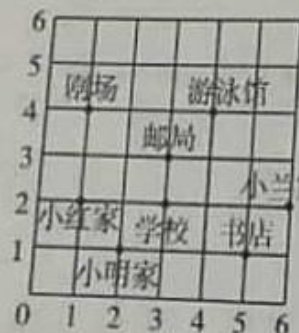 6
5
剧场 游泳馆
4
邮局
3
小兰
2
小红家 学校 书店
1
小明家
0 1 2 3 4 5 6